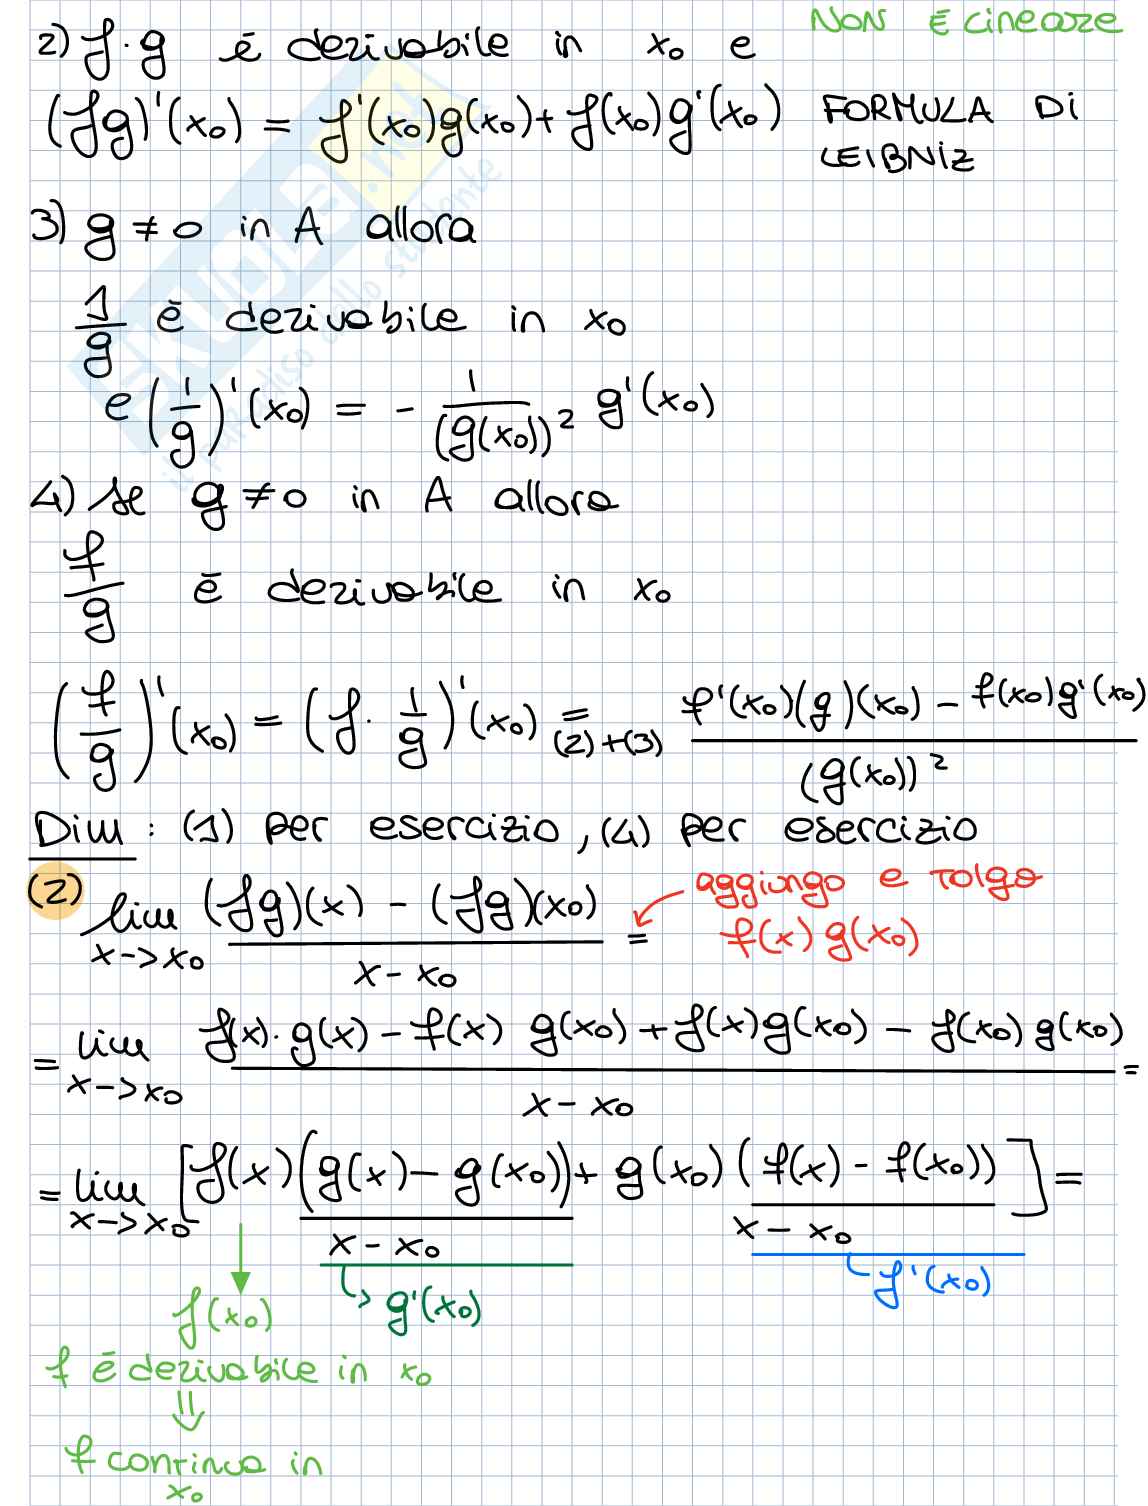 NON È lineare
2) f·g è derivabile in x₀ e
(fg)'(x₀) = f'(x₀)g(x₀)+f(x₀)g'(x₀) FORMULA DI
LEIBNIZ
3) g ≠ 0 in A allora
1/g è derivabile in x₀
e (1/g)'(x₀) = - 1/(g(x₀))² g'(x₀)
4) se g ≠ 0 in A allora
f/g è derivabile in x₀
(f/g)'(x₀) = (f · 1/g)'(x₀) =_{(2)+(3)} (f'(x₀)(g)(x₀) - f(x₀)g'(x₀))/(g(x₀))²
Dim : (1) per esercizio, (4) per esercizio
(2) lim_{x->x₀} ((fg)(x) - (fg)(x₀))/(x - x₀) =
aggiungo e tolgo
f(x) g(x₀)
= lim_{x->x₀} (f(x)·g(x) - f(x) g(x₀) + f(x)g(x₀) - f(x₀) g(x₀))/(x - x₀) =
= lim_{x->x₀} [f(x) (g(x) - g(x₀))/(x - x₀) + g(x₀) (f(x) - f(x₀))/(x - x₀)] =
f(x₀)
g'(x₀)
f'(x₀)
f è derivabile in x₀
⇓
f continua in
x₀
SKUOLA.net
il paradiso dello studente